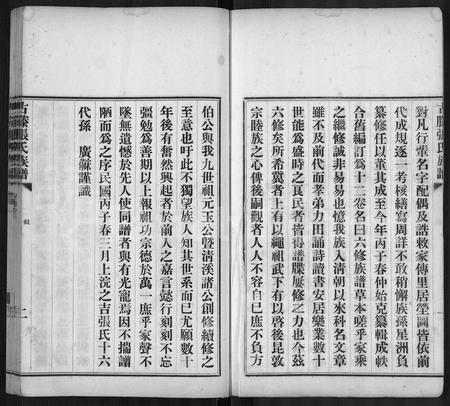 對凡行輩名字配偶及誥敕家傳里居塋圖皆依前
代成規逐一考核繕寫周詳不敢稍懈族孫星洲負
纂修任以董其成至今年丙子春仲始克纂輯成帙
合舊編訂為十二卷名曰六修族譜草本嗟乎家乘
之繼修誠非易易也憶我族入淸朝以來科名文章
雖不及前代而孝弟力田誦詩讀書安居樂業數十
世能為盛時之良民者皆得譜牒屢修之力也今茲
六修矣所希冀者上有以繩祖武下有以啓後昆敦
宗睦族之心俾後嗣觀者人人不容自已庶不負方
伯公與我九世祖元玉公暨淸溪諸公創修續修之
至意也而此不獨望族人知其世系而已尤願數十
年後有奮然興起者於前人之嘉言懿行刻刻不忘
彊勉為善期以上報祖功宗德於萬一庶乎家聲不
墜無遺憾於先人使同譜者與有光寵焉因不揣譾
陋而為之序民國丙子春三月上浣之吉張氏十六
代孫　廣蘇謹識
古滕張氏族譜
二